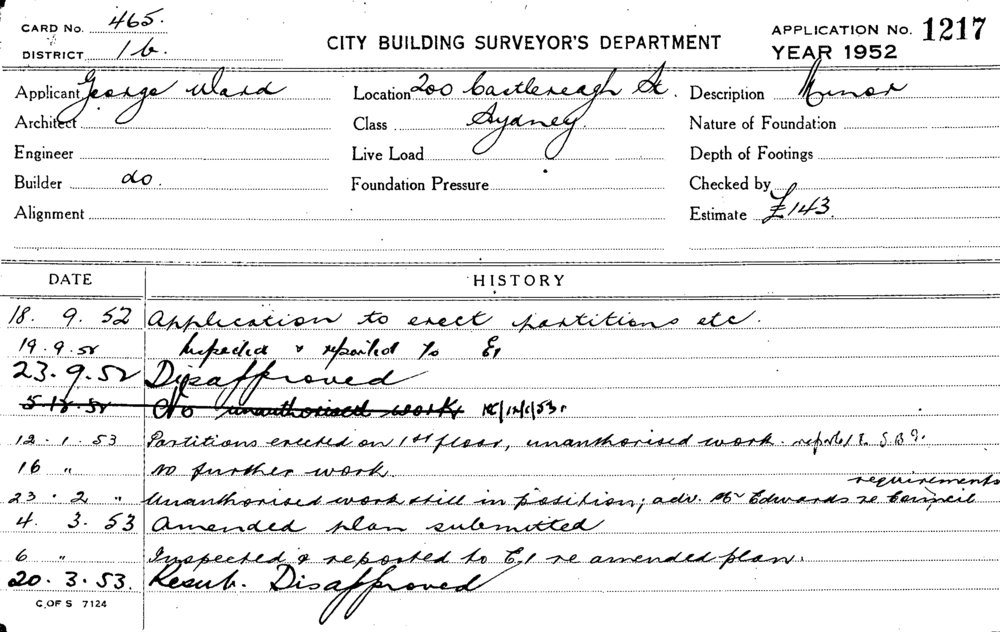 CARD No. 465.
DISTRICT 1b.
CITY BUILDING SURVEYOR'S DEPARTMENT
APPLICATION No. 1217
YEAR 1952
Applicant George Ward
Location 200 Castlereagh St.
Description Minor
Architect
Class Sydney.
Nature of Foundation
Engineer
Live Load
Depth of Footings
Builder do.
Foundation Pressure
Checked by
Alignment
Estimate £143.
DATE HISTORY
18. 9. 52 Application to erect partitions etc.
19.9.52 Inspected & reported to E1
23.9.52 Disapproved
unauthorised work
12.1.53 Partitions erected on 1st floor, unauthorised work.
16 " No further work.
requirements
23.2 " Unauthorised work still in position; adv. Mr Edwards re Council
4. 3. 53 Amended plan submitted
6 " Inspected & reported to E1 re amended plan.
20.3.53. Resub. Disapproved
C.OF S 7124